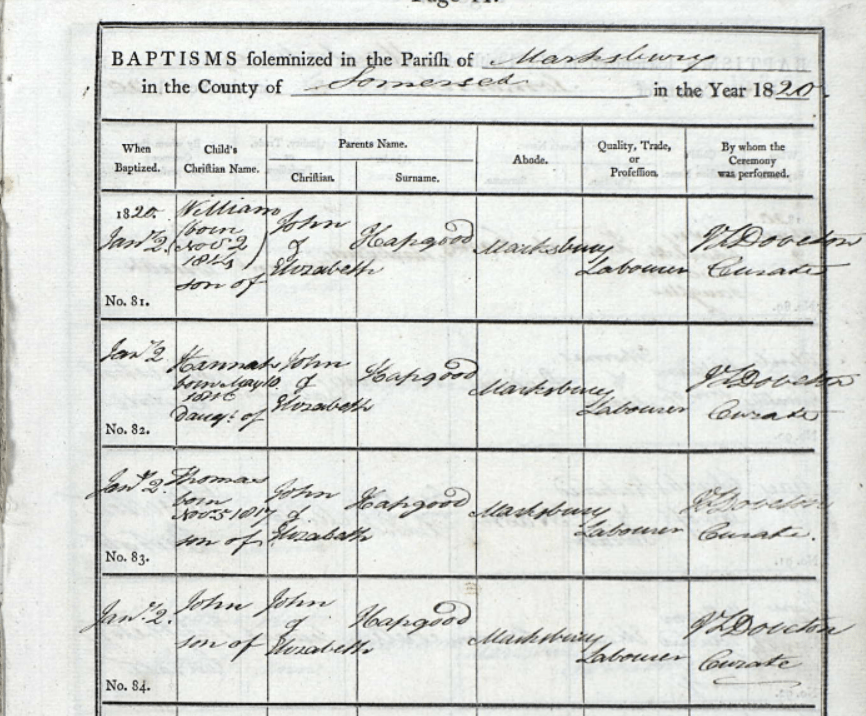 BAPTISMS solemnized in the Parish of Marksbury
in the County of Somerset in the Year 1820
When Baptized. Child's Christian Name. Parents Name. Abode. Quality, Trade, or Profession. By whom the Ceremony was performed.
Christian. Surname.
1820. William
Jany 2. (born John Hapgood Marksbury Labourer
Novr 2 &
Elizabeth
son of
Curate
No. 81.
Jany 2 Hannah John Hapgood Marksbury Labourer
born May 10 &
1816 Elizabeth
Daugt. of
Curate
No. 82.
Jany 2. Thomas John Hapgood Marksbury Labourer
born &
Novr 5 1817 Elizabeth
son of
Curate.
No. 83.
Jany 2. John John Hapgood Marksbury Labourer
son of &
Elizabeth
Curate
No. 84.